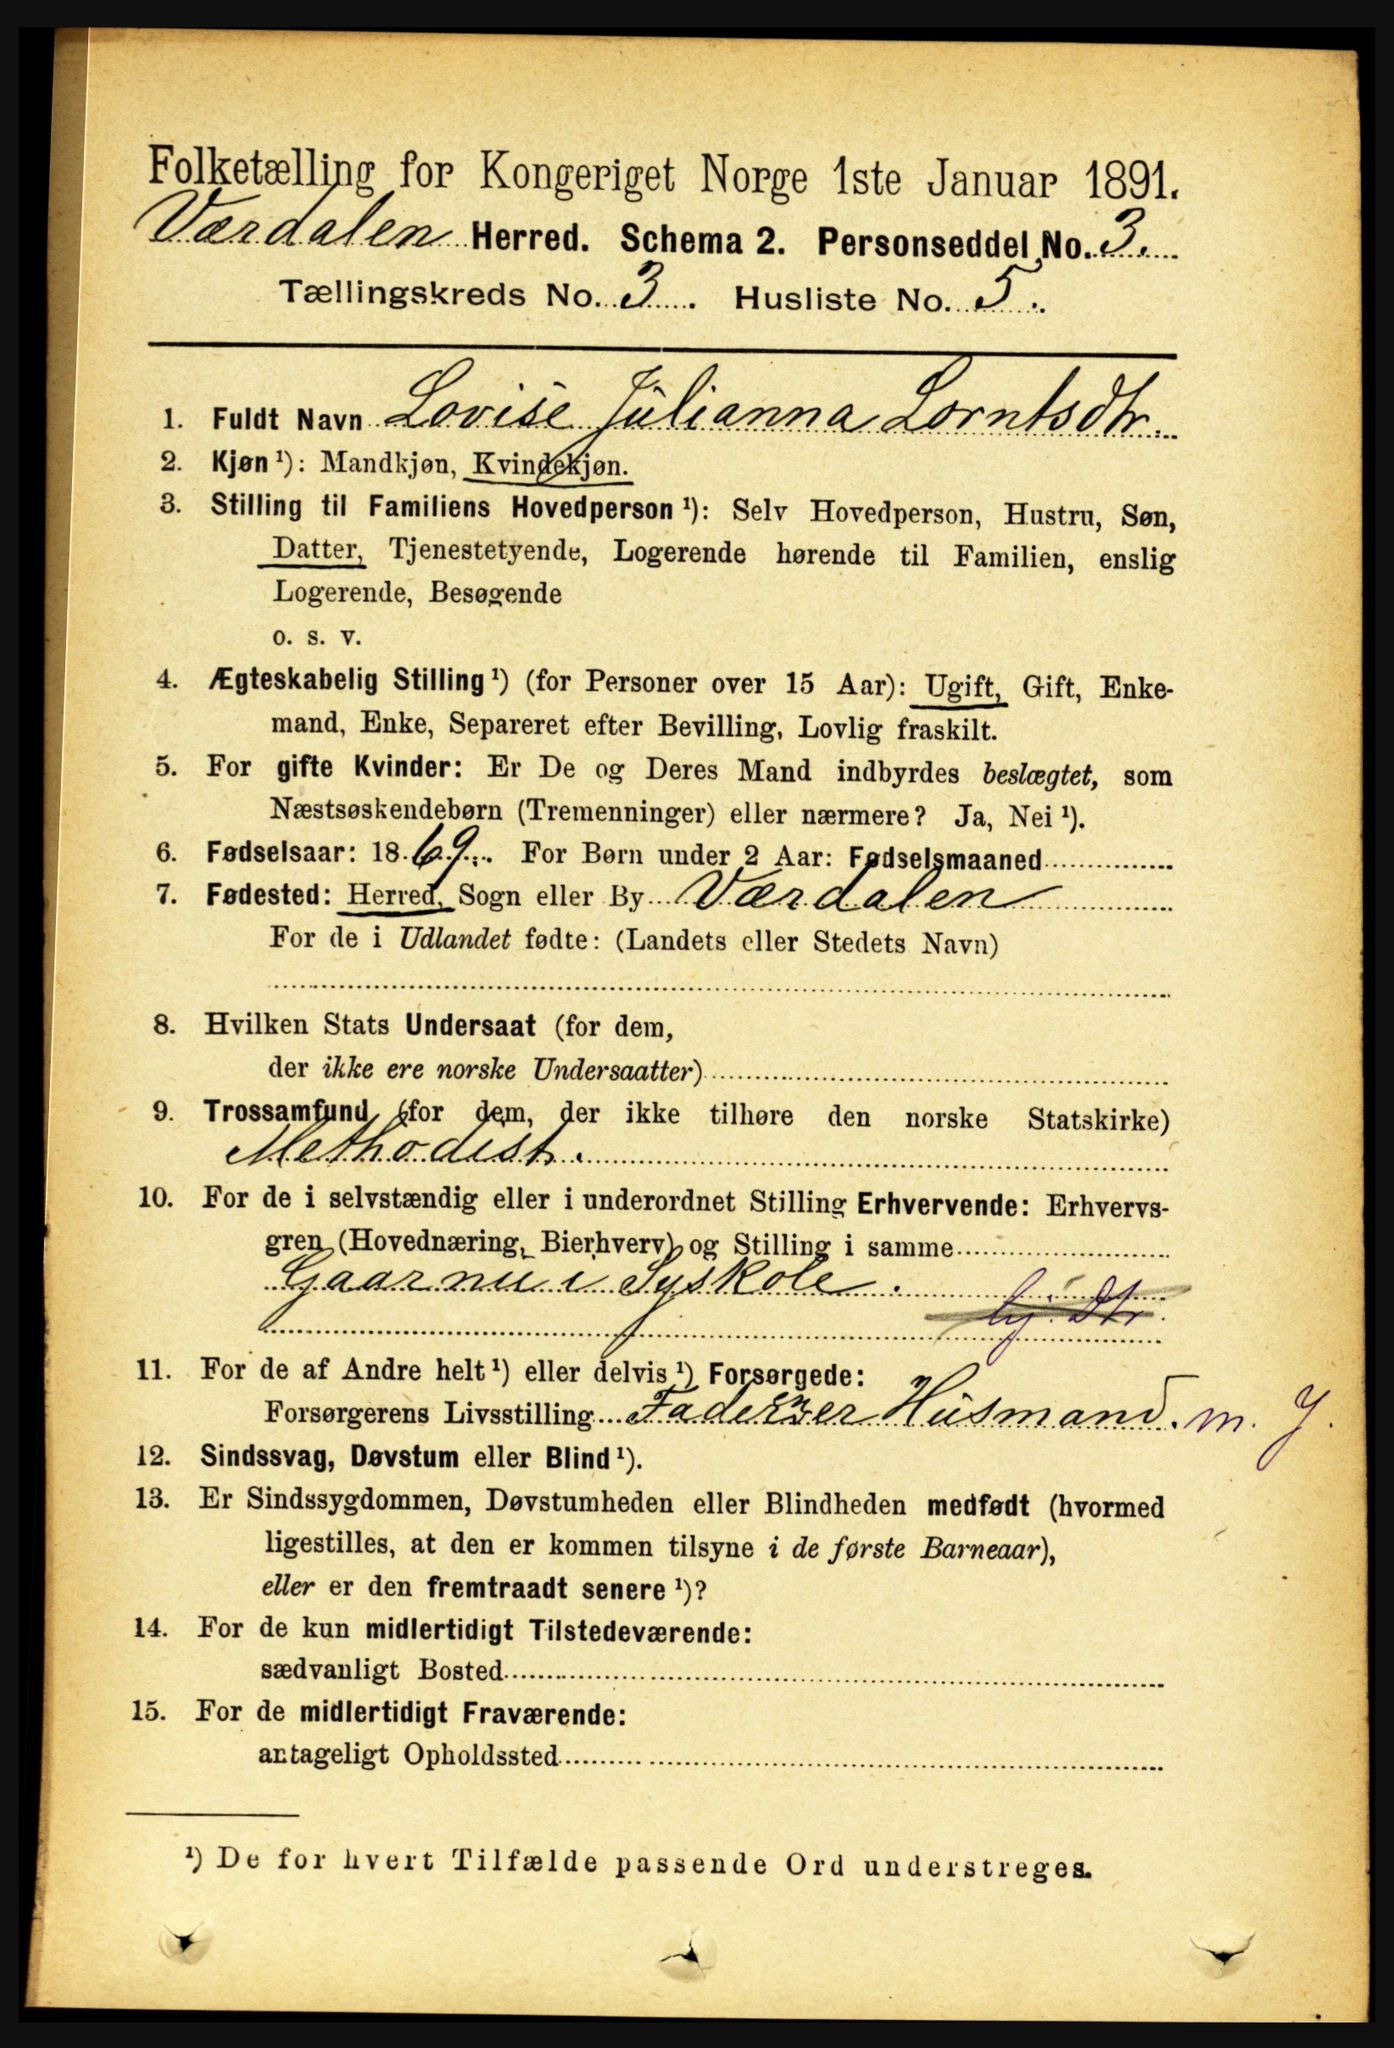 Folketælling for Kongeriget Norge 1ste Januar 1891.
Værdalen Herred. Schema 2. Personseddel No. 3.
Tællingskreds No. 3. Husliste No. 5.
1. Fuldt Navn Lovise Julianna Lorntsdtr.
2. Kjøn ¹): Mandkjøn, Kvindekjøn.
3. Stilling til Familiens Hovedperson ¹): Selv Hovedperson, Hustru, Søn,
Datter, Tjenestetyende, Logerende hørende til Familien, enslig
Logerende, Besøgende
o. s. v.
4. Ægteskabelig Stilling ¹) (for Personer over 15 Aar): Ugift, Gift, Enke-
mand, Enke, Separeret efter Bevilling, Lovlig fraskilt.
5. For gifte Kvinder: Er De og Deres Mand indbyrdes beslægtet, som
Næstsøskendebørn (Tremenninger) eller nærmere? Ja, Nei ¹).
6. Fødselsaar: 1869. For Børn under 2 Aar: Fødselsmaaned
7. Fødested: Herred, Sogn eller By Værdalen
For de i Udlandet fødte: (Landets eller Stedets Navn)
8. Hvilken Stats Undersaat (for dem,
der ikke ere norske Undersaatter)
9. Trossamfund (for dem, der ikke tilhøre den norske Statskirke)
Methodist.
10. For de i selvstændig eller i underordnet Stilling Erhvervende: Erhvervs-
gren (Hovednæring, Bierhverv) og Stilling i samme
Gaar nu i Syskole.
hj. Dtr.
11. For de af Andre helt ¹) eller delvis ¹) Forsørgede:
Forsørgerens Livsstilling Fader er Husmand. m. J.
12. Sindssvag, Døvstum eller Blind ¹).
13. Er Sindssygdommen, Døvstumheden eller Blindheden medfødt (hvormed
ligestilles, at den er kommen tilsyne i de første Barneaar),
eller er den fremtraadt senere ¹)?
14. For de kun midlertidigt Tilstedeværende:
sædvanligt Bosted
15. For de midlertidigt Fraværende:
antageligt Opholdssted
¹) De for hvert Tilfælde passende Ord understreges.